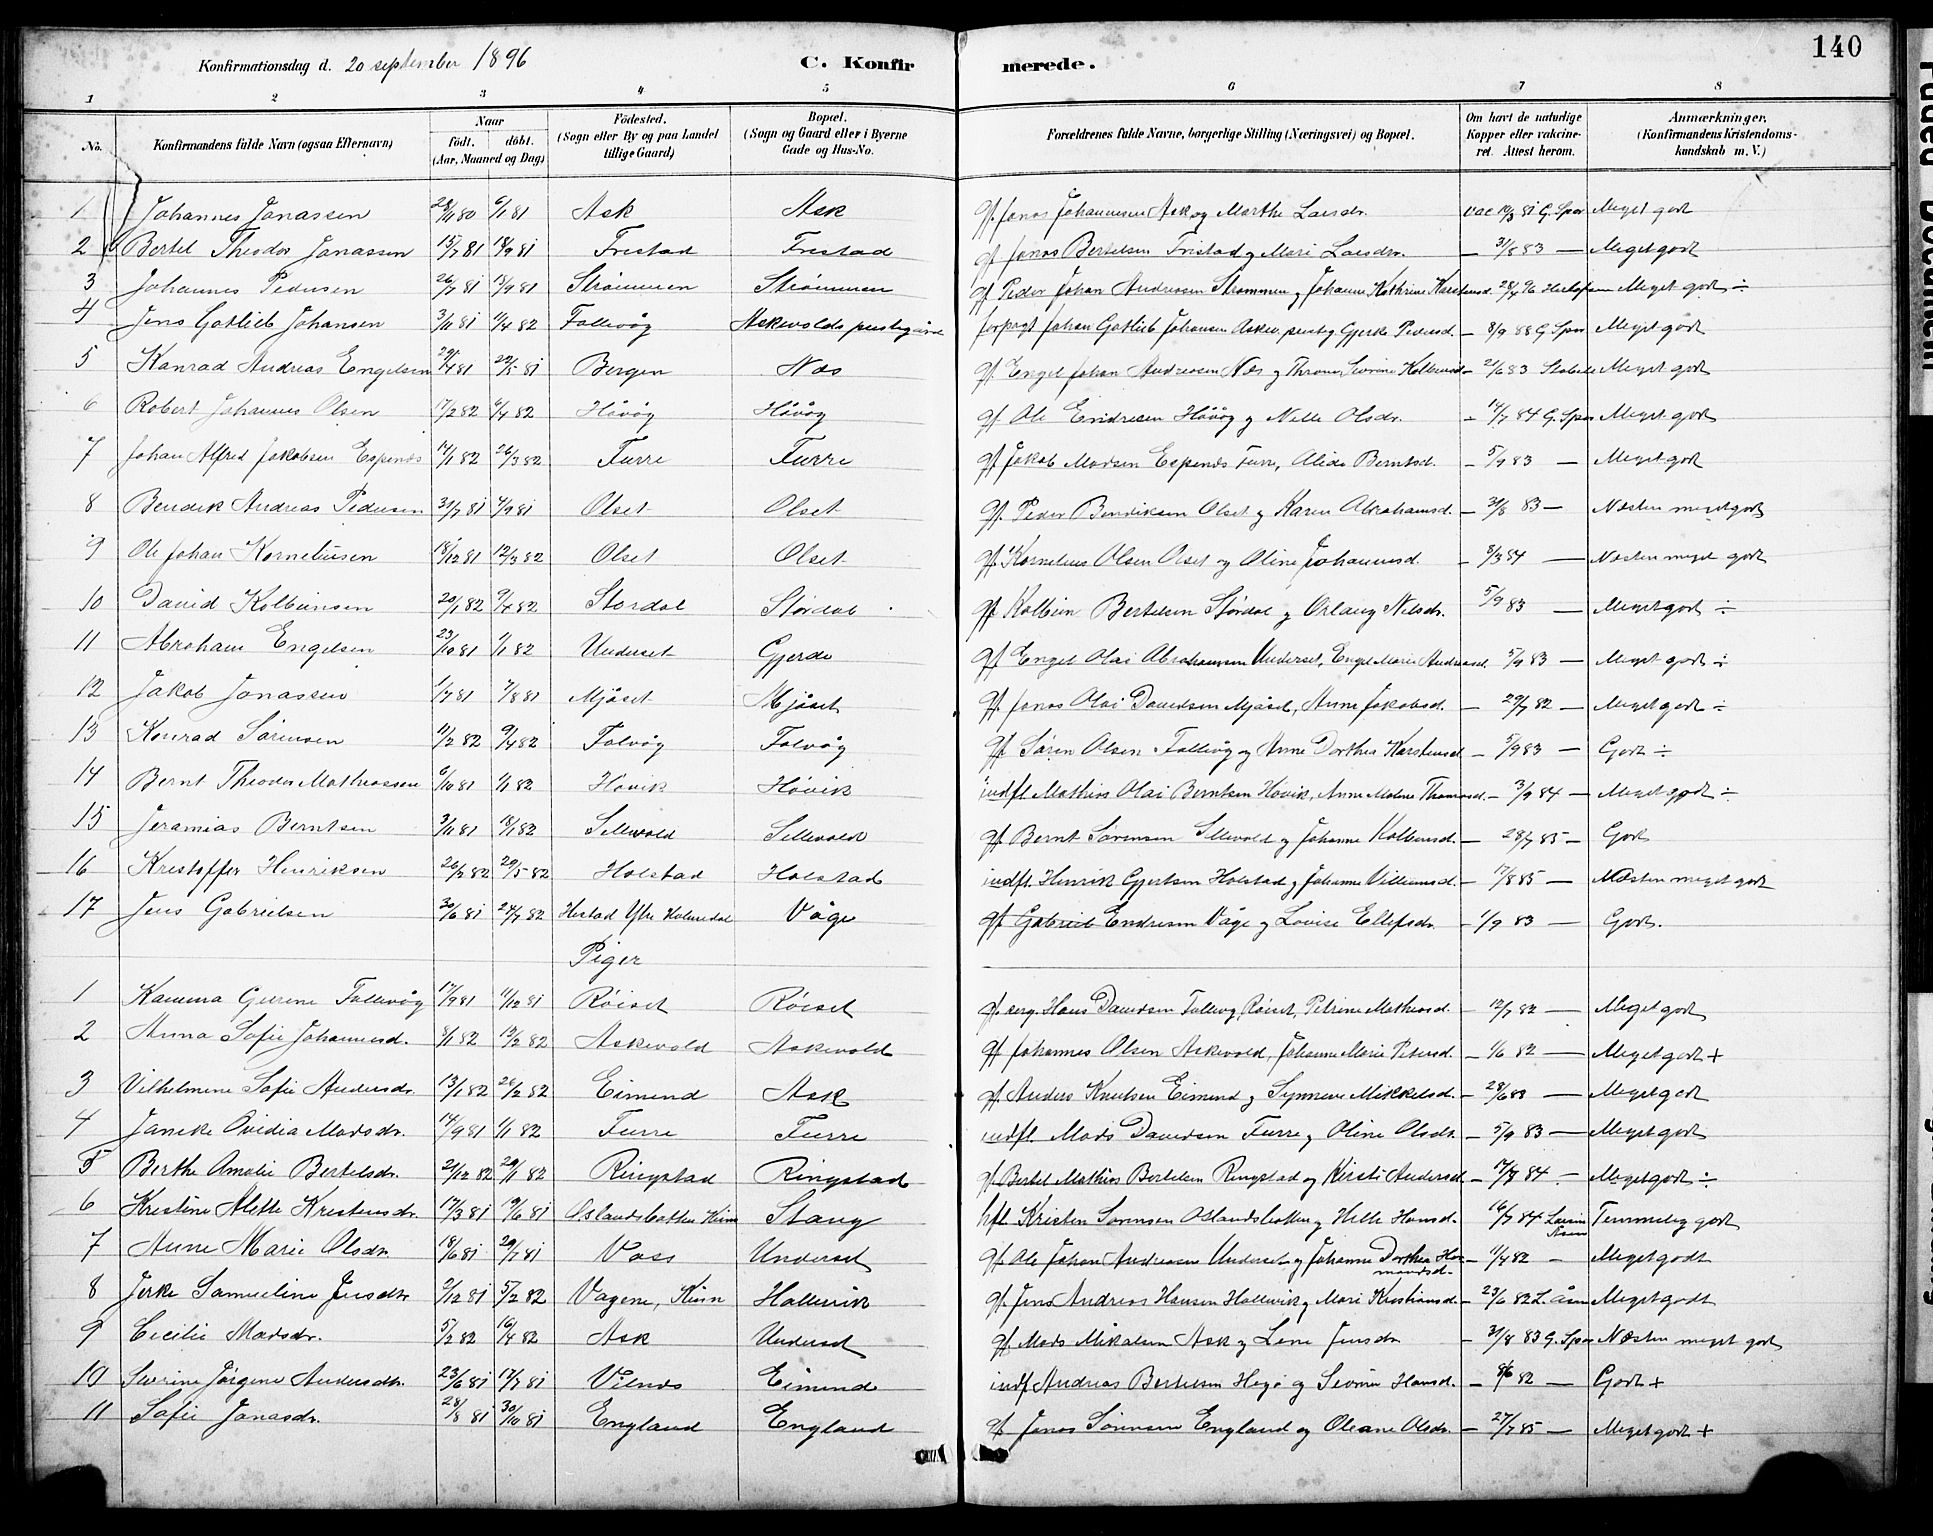 140
Konfirmationsdag d. 20 september 1896 C. Konfirmerede.
1 2 3 4 5 6 7 8
No. Konfirmandens fulde Navn (ogsaa Efternavn) Naar födt. döbt. (Aar, Maaned og Dag) Födested. (Sogn eller By og paa Landet tillige Gaard) Bopæl. (Sogn og Gaard eller i Byerne Gade og Hus-No. Forældrenes fulde Navne, borgerlige Stilling (Næringsvei) og Bopæl. Om havt de naturlige Kopper eller vakcineret. Attest herom. Anmærkninger. (Konfirmandens Kristendomskundskab m. V.)
1 Johannes Jonassen 28/11 80 6/1 81 Ask Ask gf. Jonas Johannesen Ask og Marthe Larsdr. vac 19/3 81 G. Spor Meget godt
2 Bertel Theodor Jonassen 15/7 81 18/9 81 Fristad Fristad gf Jonas Bertelsen Fristad og Mari Larsdr. — 31/8 83 — Meget godt
3 Johannes Pedersen 26/7 81 18/9 81 Strømmen Strømmen gf Peder Johan Andreasen Strømmen og Johanne Kathrine Karstensd. 28/4 96 Meget godt ÷
4 Jens Gotlieb Johansen 3/11 81 1/4 82 Follevåg Askevolds prestegård forpagt Johan Gotlieb Johansen Askev. prestg Gjerke Pedersd. — 8/9 88 G. Spor Meget godt
5 Konrad Andreas Engelsen 29/4 81 22/5 81 Bergen Næs gf. Engel Johan Andreasen Næs og Severine — 21/6 83 Meget godt
6 Robert Johannes Olsen 17/2 82 6/4 82 Håvåg Håvåg gf Ole Endresen Håvåg og Nille Olsdr. — 14/7 84 G. Spor Meget godt
7 Johan Alfred Jakobsen Espenes 14/1 82 26/3 82 Furre Furre gf Jakob Madsen Espenes Furre, Alida Berntsd. — 5/9 83 — Meget godt
8 Bendik Andreas Pedersen 31/7 81 4/9 81 Olset Olset gf. Peder Bendiksen Olset og Karen Abrahamsd. — 31/8 83 — Næsten meget godt
9 Ole Johan Korneliusen 18/12 81 12/3 82 Olset Olset gf. Kornelius Olsen Olset og Oline Johannesd. — 3/3 84 — Næsten meget godt
10 David Kolbeinsen 20/1 82 9/4 82 Stordal Størdal gf Kolbein Bertelsen Størdal og Orlaug Nilsdr. 5/9 83 — Meget godt ÷
11 Abraham Engelsen 23/10 81 1/1 82 Underset Gjerde gf Engel Olai Abrahamsen Underset, Engel Marie Andersd. 5/9 83 — Meget godt ÷
12 Jakob Jonassen 1/7 81 7/8 81 Mjåset Mjåset gf. Jonas Olai Davidsen Mjåset, Anne Jakobsd. — 29/7 82 — Meget godt ÷
13 Konrad Sørensen 11/2 82 9/4 82 Folvåg Folvåg gf Søren Olsen Follevåg og Anne Dorthea Karstensd — 5/9 83 — Godt ÷
14 Bernt Theodor Mathiassen 6/10 81 1/1 82 Høvik Høvik indfl Mathias Olai Berntsen Høvik, Anne Malene Thomasd. — 3/9 84 — Meget godt ÷
15 Jeramias Berntsen 3/11 81 18/1 82 Sellevold Sellevold gf Bernt Sørensen Sellevold og Johanne Kolbeinsd. — 28/7 85 — Godt
16 Kristoffer Henriksen 26/2 82 29/5 82 Holstad Holstad indfl. Henrik Gjertsen Holstad og Johanne Villumsd. — 17/8 85 — Næsten meget godt
17 Jens Gabrielsen 30/6 81 24/7 82 Hestad Ytre Holmedal Våge gf. Gabriel Endresen Våge og Lovise Ellefsdr. — 1/9 83 — Godt.
Piger
1 Kamma Gurine Follevåg 17/9 81 11/12 81 Røiset Røiset gf. serg. Hans Davidsen Follevåg, Røiset, Petrine Mathiasd. — 12/7 82 — Meget godt
2 Anna Sofie Johannesd. 8/1 82 12/2 82 Askevold Askevold gf Johannes Olsen Askevold, Johanne Marie Petersd. — 1/6 82 — Meget godt +
3 Vilhelmine Sofie Andersdr. 13/1 82 26/2 82 Eimend Ask gf. Anders Knutsen Eimend og Synneve Mikkelsd. — 28/6 83 — Meget godt
4 Janeke Ovidia Madsdr. 14/9 81 1/1 82 Furre Furre indfl Mads Davidsen Furre og Oline Olsdr. — 5/9 83 — Meget godt
5 Berthe Amalie Bertelsdr. 21/12 82 29/1 82 Ringstad Ringstad gf. Bertel Mathias Bertelsen Ringstad og Kirsti Andersd — 17/7 84 — Meget godt ÷
6 Kristine Alette Kristensdr. 17/3 81 19/6 81 Oslandsbotten Kinn Stang hfl. Kristen Sørensen Oslandsbotten og Helle Hansd. — 16/7 84 Temmelig godt
7 Anne Marie Olsdr. 18/6 81 29/7 81 Voss Underset gf. Ole Johan Andreasen Underset og Johanne Dorthea — 1/7 82 — Meget godt
8 Jerke Samueline Jensdr. 9/12 81 5/2 82 Vågene, Kinn Hallevik gf. Jens Andreas Hansen Hallevik og Mari Kristiansd. — 23/6 82 L. Åsen Meget godt
9 Cecilie Madsdr. 5/2 82 16/4 82 Ask Underset gf. Mads Mikalsen Ask og Lene Jensdr — 31/8 83 G. Spor Næsten meget godt
10 Severine Jørgene Andersdr. 23/6 81 17/7 81 Vilnes Eimend indf Andreas Bertelsen Hegø og Severine Hansd. — 8/6 82 — Godt +
11 Sofie Jonasdr. 28/8 81 30/10 81 England England gf Jonas Sørensen England og Oleane Olsdr. — 27/7 85 — Meget godt +